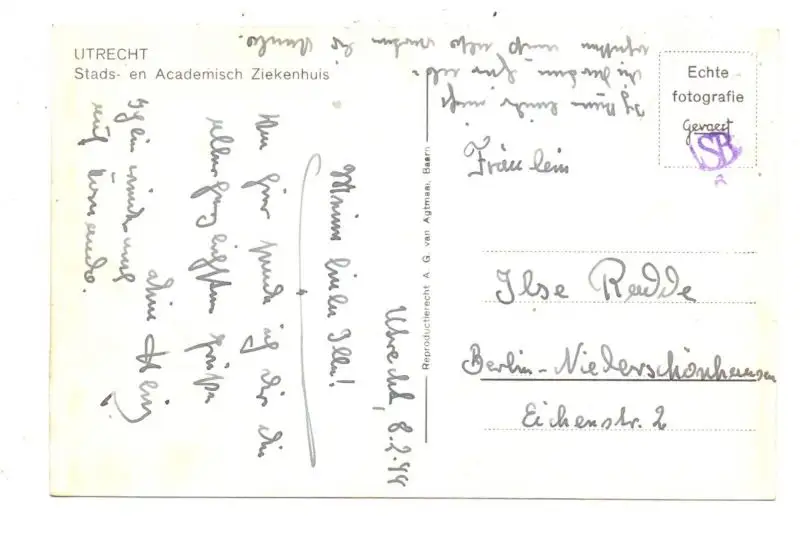 UTRECHT
Stads- en Academisch Ziekenhuis
Echte
fotografie
Gevaert
SB
Reproductierecht A. G. van Agtmaal, Baarn
Fräulein
Ilse Redde
Berlin-Niederschönhausen
Eichenstr. 2
Utrecht, 8.2.44
Meine liebe Ilse!
Von hier sende ich Dir die
allerherzlichsten Grüße
Dein Heinz
Ich bin wieder mal
auf
Ich kann leider nicht